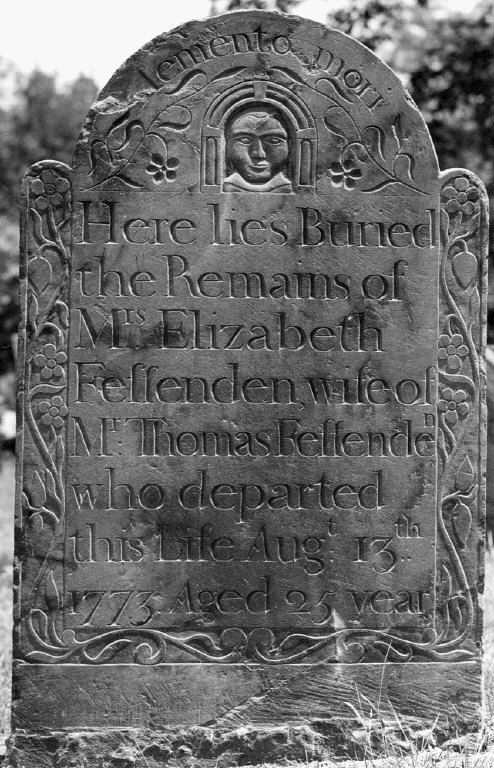 Memento mori
Here lies Buried
the Remains of
Mrs Elizabeth
Feſſenden, wife of
Mr. Thomas Feſſenden
who departed
this Life Augt. 13th.
1773. Aged 25 year